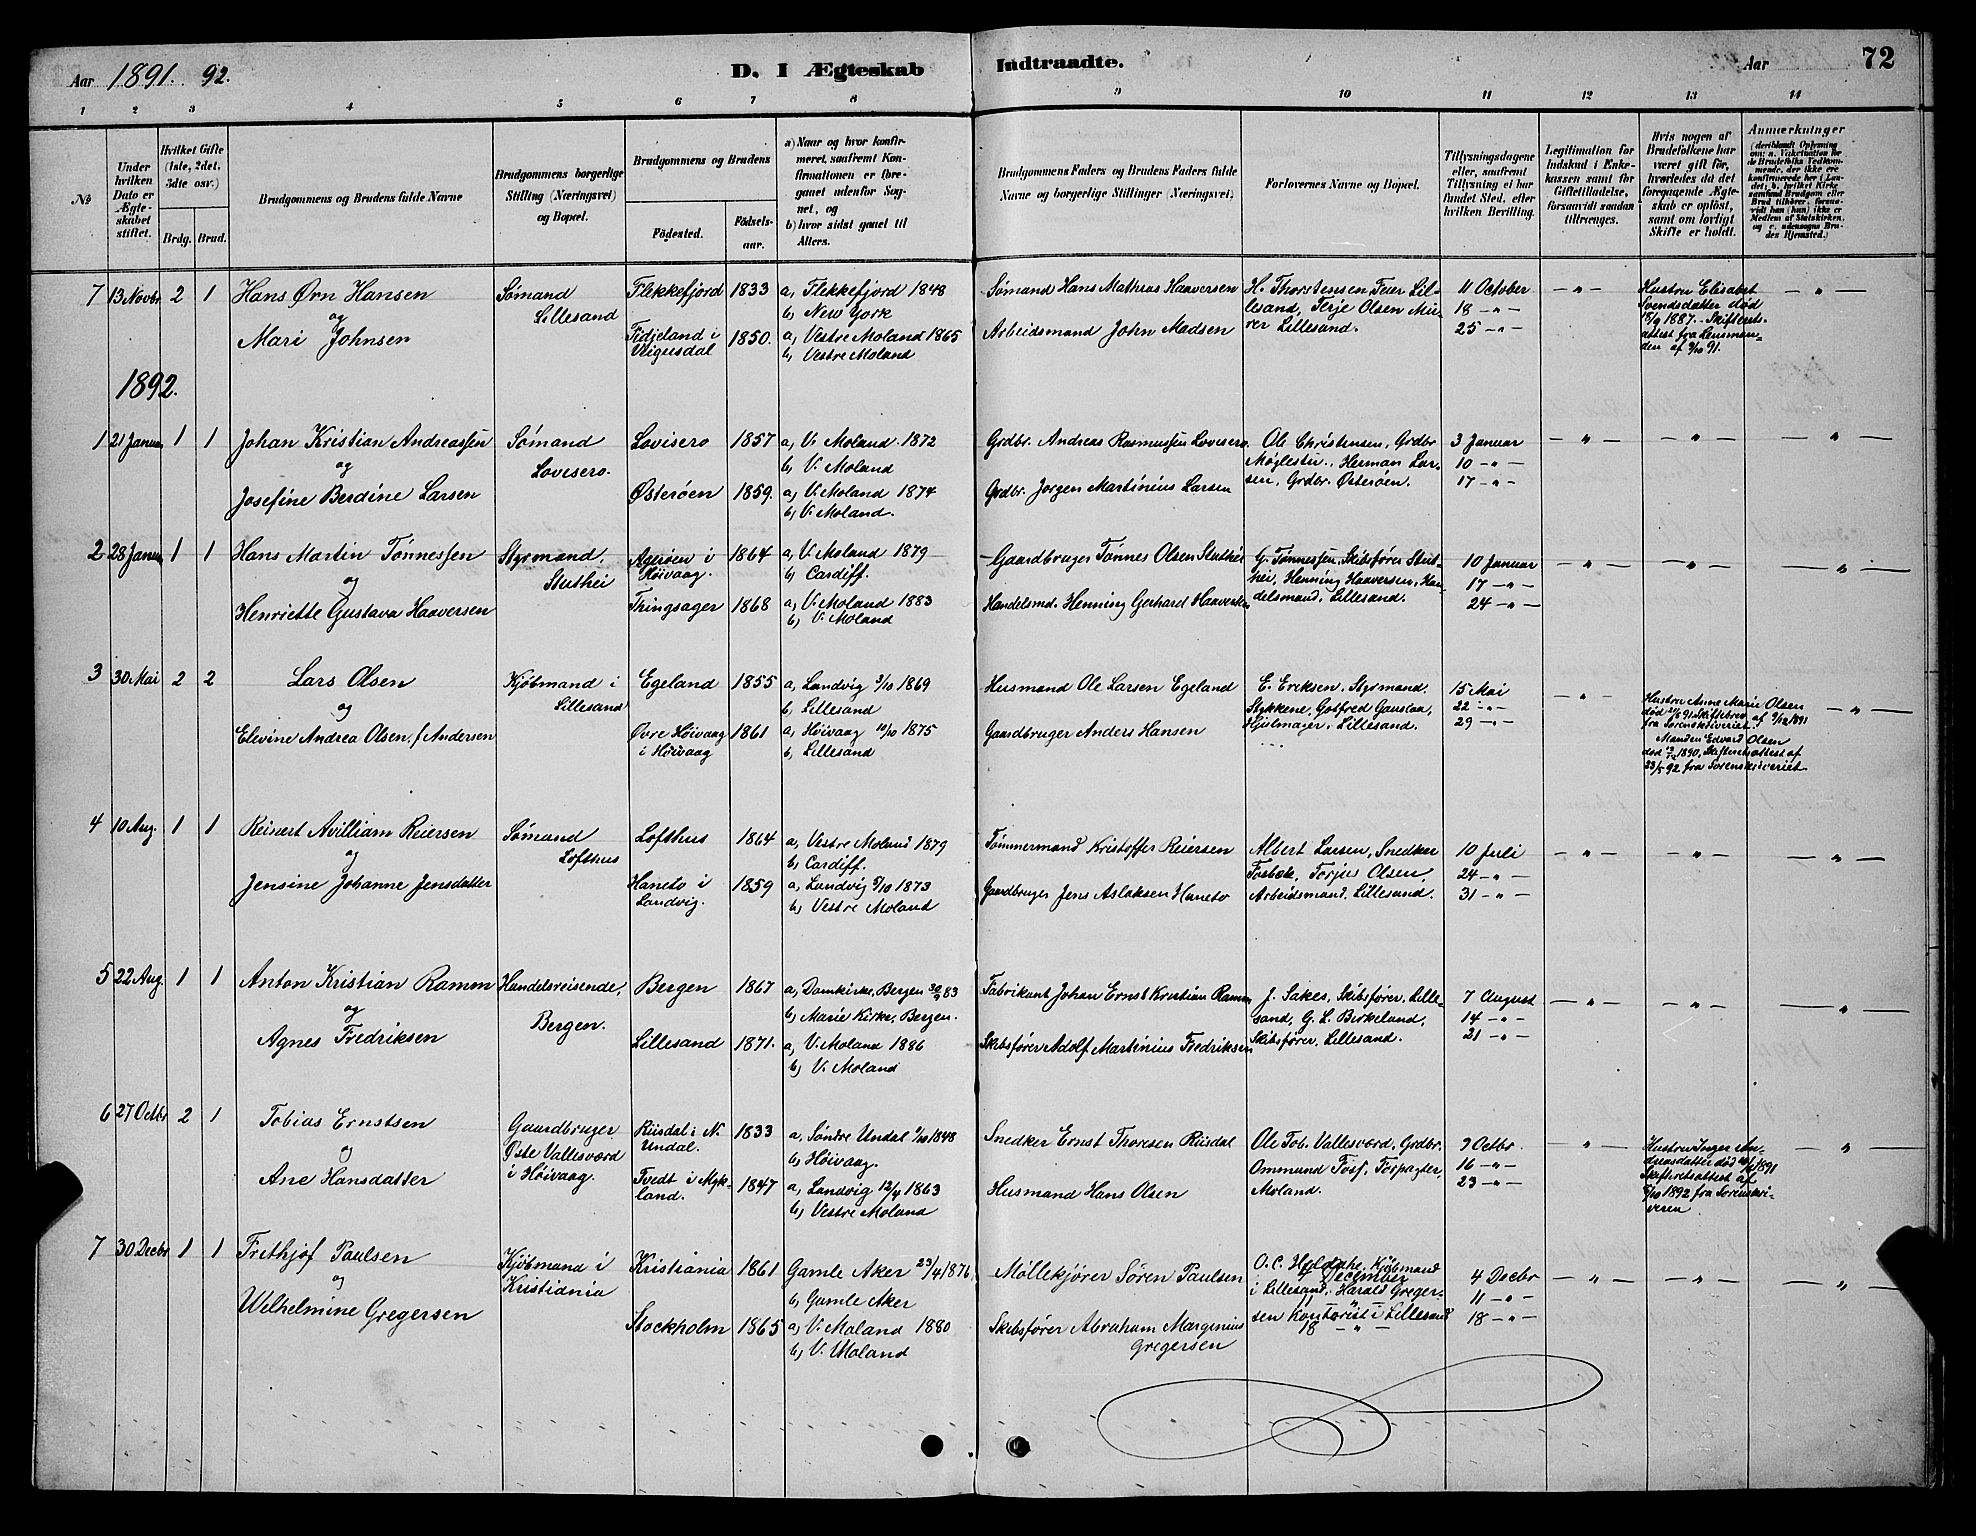 Aar 1891. 92.
D. I Ægteskab Indtraadte.
Aar
72
1 2 3 4 5 6 7 8 9 10 11 12 13 14
No
Under hvilken Dato er Ægteskabet stiftet.
Hvilket Gifte (1ste, 2det, 3die osv.)
Brdg. Brud.
Brudgommens og Brudens fulde Navne
Brudgommens borgerlige Stilling (Næringsvei) og Bopæl.
Brudgommens og Brudens
Födested. Födsels-aar.
a) Naar og hvor konfirmeret, saafremt Konfirmationen er foregaaet udenfor Sognet, og
b) hvor sidst gaaet til Alters.
Brudgommens Faders og Brudens Faders fulde Navne og borgerlige Stillinger (Næringsvei)
Forlovernes Navne og Bopæl.
Tillysningsdagene eller, saafremt Tillysning ei har fundet Sted, efter hvilken Bevilling.
Legitimation for Indskud i Enkekassen samt for Giftetilladelse, forsaavidt saadan tiltrænges.
Hvis nogen af Brudefolkene har været gift för, hvorledes da det foregaaende Ægteskab er oplöst, samt om lovligt Skifte er holdt.
Anmærkninger
7 13 Novbr. 2 1
Hans Ørn Hansen
og
Mari Johnsen
Sømand
Lillesand
Flekkefjord 1833
Fidjeland i
1850.
a, Flekkefjord 1848
b, New York
a, Vestre Moland 1865
b, Vestre Moland
Sømand Hans Mathias Haaversen
Arbeidsmand John Madsen
H. Thorstensen, Feier Lil-
lesand, Terje Olsen Mu-
rer Lillesand.
11 October
18 -"-
25 -"-
-"-
Hustru Elisabet
Svendsdatter død
18/9 1887. Skifterets-
attest fra Lensman-
den af 9/10 91.
-"-
1892.
1 21 Januar 1 1
Johan Kristian Andreassen
og
Josefine Berdine Larsen
Sømand
Lovisero.
Lovisero 1857
Østerøen 1859.
a, V. Moland 1872
b, V. Moland
a, V. Moland 1874
b, V. Moland.
Grdbr. Andreas Rasmussen Lovisero.
Grdbr. Jørgen Martinius Larsen
Ole Christensen, Grdbr
Møglestu, Herman Lar-
sen, Grdbr. Østerøen.
3 Januar
10 -"-
17 -"-
-"- -"- -"-
2 28 Januar 1 1
Hans Martin Tønnessen
og
Henriette Gustava Haaversen
Styrmand
Stuthei
Agerøen i
Høivaag. 1864
Tingsager 1868
a, V. Moland 1879
b, Cardiff.
a, V. Moland 1883
b, V. Moland
Gaardbruger Tønnes Olsen Stuthei
Handelsmd. Henning Gerhard Haaversen
G. Tønnessen, Skibsfører Stut-
hei, Henning Haaversen, Han-
delsmand, Lillesand.
10 Januar
17 -"-
24 -"-
-"- -"- -"-
3 30 Mai 2 2
Lars Olsen
og
Elevine Andrea Olsen, f. Andersen
Kjøbmand i
Lillesand
Egeland 1855
Øvre Høivaag
i Høivaag 1861
a, Landvig 3/10 1869
b, Lillesand
a, Høivaag 10/10 1875
b, Lillesand
Husmand Ole Larsen Egeland
Gaardbruger Anders Hansen
E. Eriksen, Styrmand,
Stykkene, Gotfred Gauslaa,
Hjulmager, Lillesand.
15 Mai
22 -"-
29 -"-
-"-
Hustru Anne Marie Olsen
fra Sorenskriveriet
Manden Edvard Olsen
død 1890, Skifteretsattest af
23/5 92 fra Sorenskriveriet.
-"-
4 10 Aug. 1 1
Reinert Avilliam Reiersen
og
Jensine Johanne Jensdatter
Sømand
Lofthus
Lofthus 1864
Haneto i
Landvig. 1859
a, Vestre Moland 1879
b, Cardiff.
a, Landvig 5/10 1873
b, Vestre Moland
Tømmermand Kristoffer Reiersen
Gaardbruger Jens Aslaksen Haneto
Albert Larsen, Snedker
Fosbæk, Torjus Olsen,
Arbeidsmand, Lillesand.
10 Juli
24 -"-
31 -"-
-"- -"- -"-
5 22 Aug. 1 1
Anton Kristian Ramm
og
Agnes Fredriksen
Handelsreisende,
Bergen.
Bergen 1867
Lillesand 1871.
a, Domkirke, Bergen 30/9 83
b, Marie Kirke, Bergen.
a, V. Moland 1886
b, V. Moland
Fabrikant Johan Ernst Kristian Ramm
Skibsfører Adolf Martinius Fredriksen
J. Sakes, Skibsfører, Lille-
sand, G. L. Birkeland,
Skibsfører, Lillesand.
7 August
14 -"-
21 -"-
-"- -"- -"-
6 27 Octbr 2 1
Tobias Ernstsen
og
Ane Hansdatter
Gaardbruger
Øste Vallesværd
i Høivaag.
Riisdal i N.
Undal. 1833
Tvedt i Myk-
land. 1847
a, Søndre Undal 1/10 1848
b, Høivaag.
a, Landvig 12/4 1863
b, Vestre Moland
Snedker Ernst Thoresen Riisdal
Husmand Hans Olsen
Ole Tob. Vallesværd, Grdbr.
Ommund Tosf. Forpagter,
Moland.
9 Octbr.
16 -"-
23 -"-
-"-
Hustru Inger An-
dreasdatter død 1891
Skifteretsattest af
5/10 1892 fra Sorenskri-
veren
-"-
7 30 Decbr 1 1
Frithjof Paulsen
og
Wilhelmine Gregersen
Kjøbmand i
Kristiania
Kristiania 1861
Stockholm 1865
Gamle Aker 23/4 1876
b, Gamle Aker
a, V. Moland 1880
b, V. Moland
Møllekjører Søren Paulsen
Skibsfører Abraham Marginius
Gregersen
O. C. Holdahe, Kjøbmand
4 December
i Lillesand, Harald Greger-
sen Kontorist i Lillesand
18 -"-
4 Decbr
11 -"-
18 -"-
-"- -"- -"-